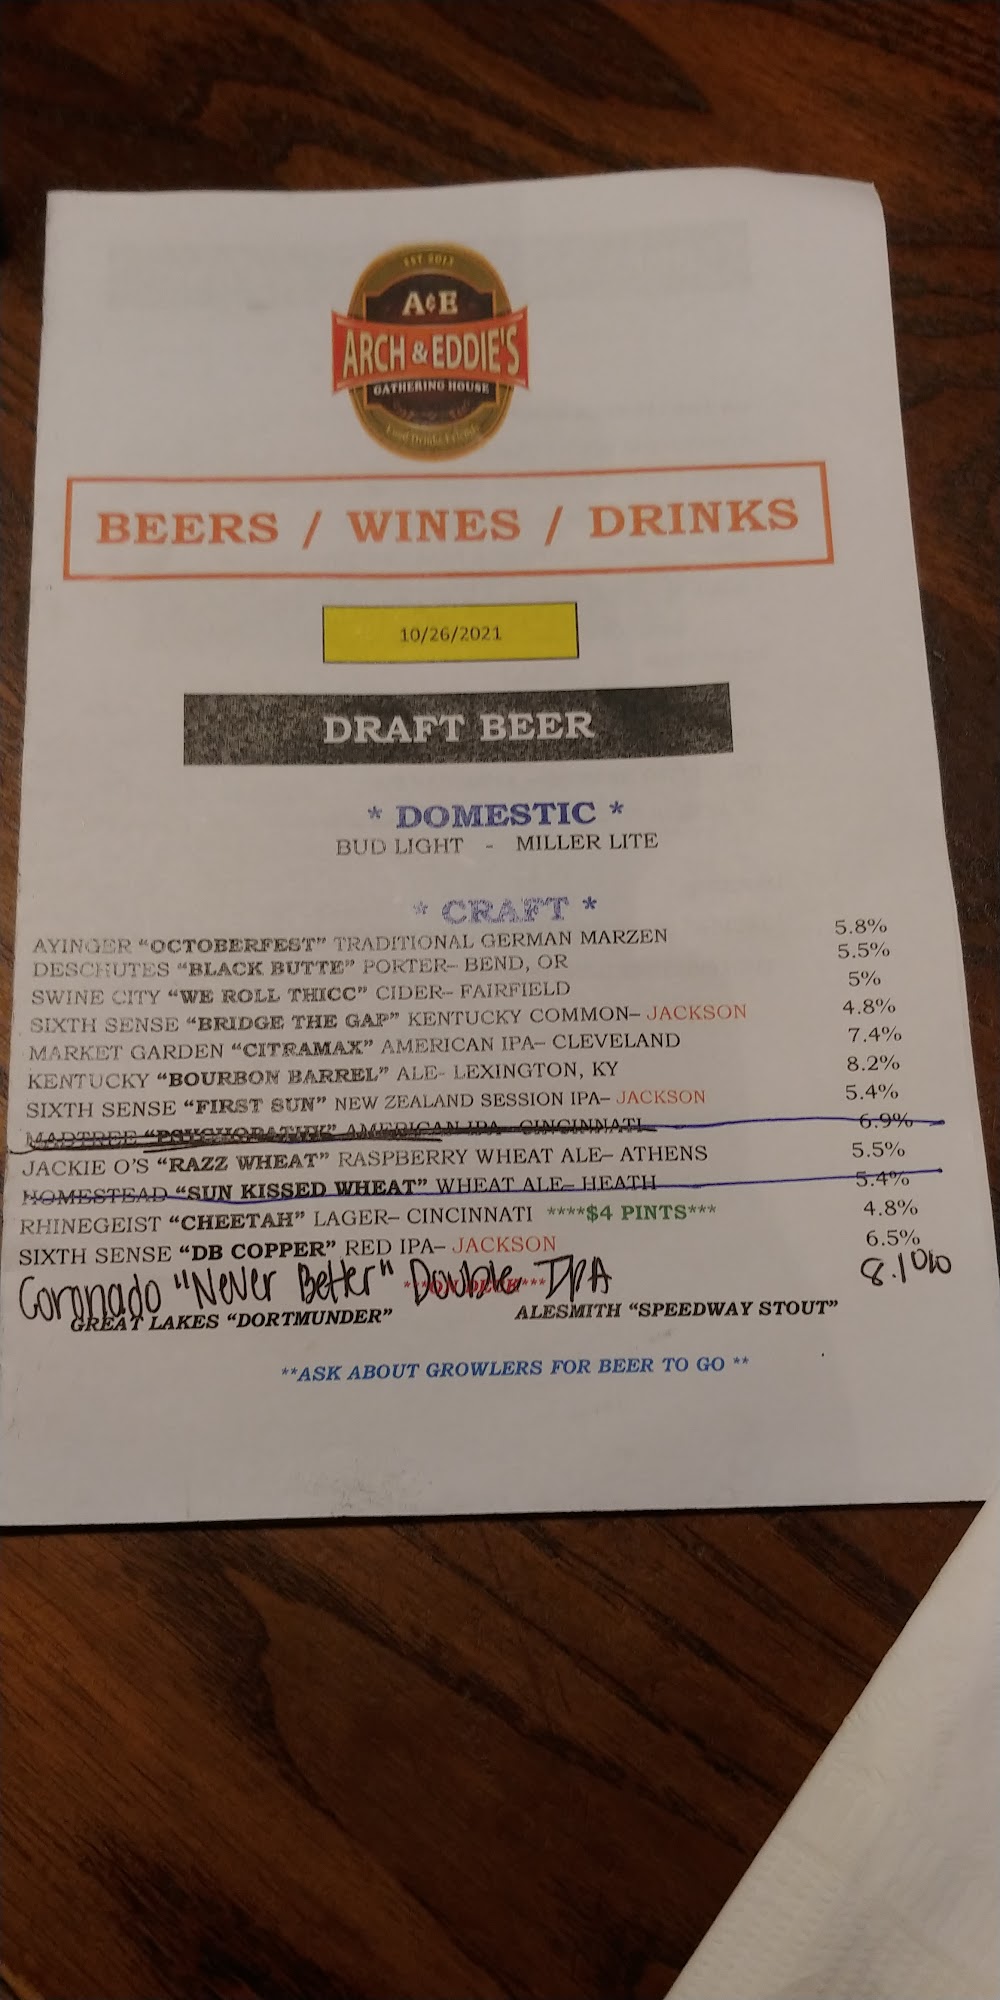 EST 2013
A&E
ARCH & EDDIE'S
GATHERING HOUSE
BEERS / WINES / DRINKS
10/26/2021
DRAFT BEER
* DOMESTIC *
BUD LIGHT - MILLER LITE
* CRAFT *
AYINGER “OCTOBERFEST” TRADITIONAL GERMAN MARZEN 5.8%
DESCHUTES “BLACK BUTTE” PORTER– BEND, OR 5.5%
SWINE CITY “WE ROLL THICC” CIDER– FAIRFIELD 5%
SIXTH SENSE “BRIDGE THE GAP” KENTUCKY COMMON– JACKSON 4.8%
MARKET GARDEN “CITRAMAX” AMERICAN IPA– CLEVELAND 7.4%
KENTUCKY “BOURBON BARREL” ALE- LEXINGTON, KY 8.2%
SIXTH SENSE “FIRST SUN” NEW ZEALAND SESSION IPA– JACKSON 5.4%
MADTREE “PSYCHOPATHY” AMERICAN IPA– CINCINNATI 6.9%
JACKIE O’S “RAZZ WHEAT” RASPBERRY WHEAT ALE– ATHENS 5.5%
HOMESTEAD “SUN KISSED WHEAT” WHEAT ALE– HEATH 5.4%
RHINEGEIST “CHEETAH” LAGER– CINCINNATI ****$4 PINTS*** 4.8%
SIXTH SENSE “DB COPPER” RED IPA– JACKSON 6.5%
Coronado "Never Better" Double IPA 8.1%
***ON DECK***
GREAT LAKES “DORTMUNDER” ALESMITH “SPEEDWAY STOUT”
**ASK ABOUT GROWLERS FOR BEER TO GO **